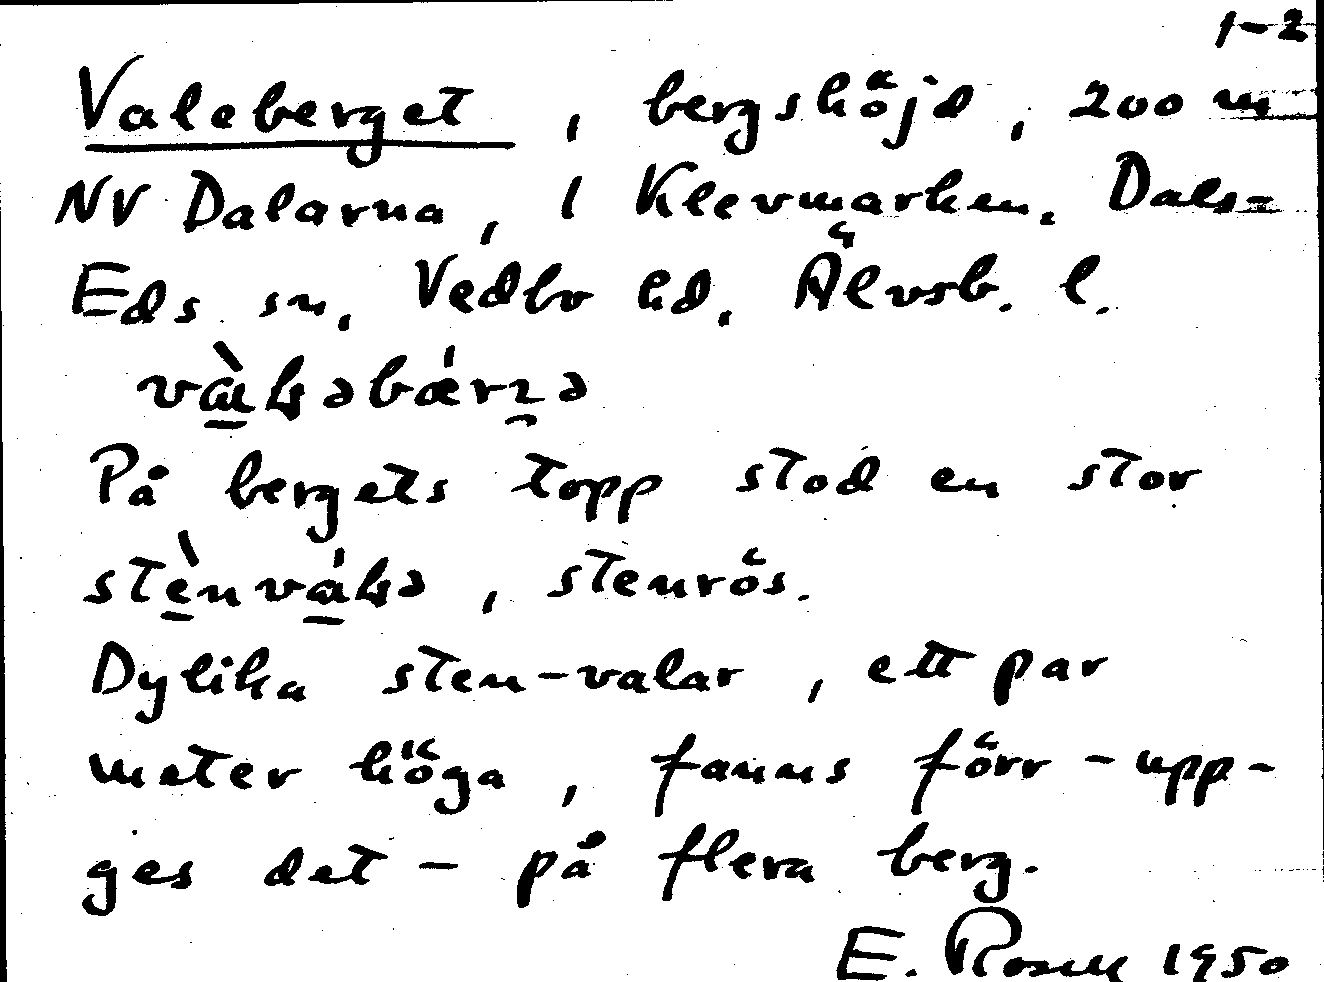 1-2
Valeberget, bergshöjd, 200 m
NV Dalarna, i Klevmarken. Dals-
Eds sn, Vedbo hd, Älvsb. l.
På bergets topp stod en stor
, stenrös.
Dylika sten-valar, ett par
meter höga, fanns förr - upp-
ges det - på flera berg.
E. Rosell 1950